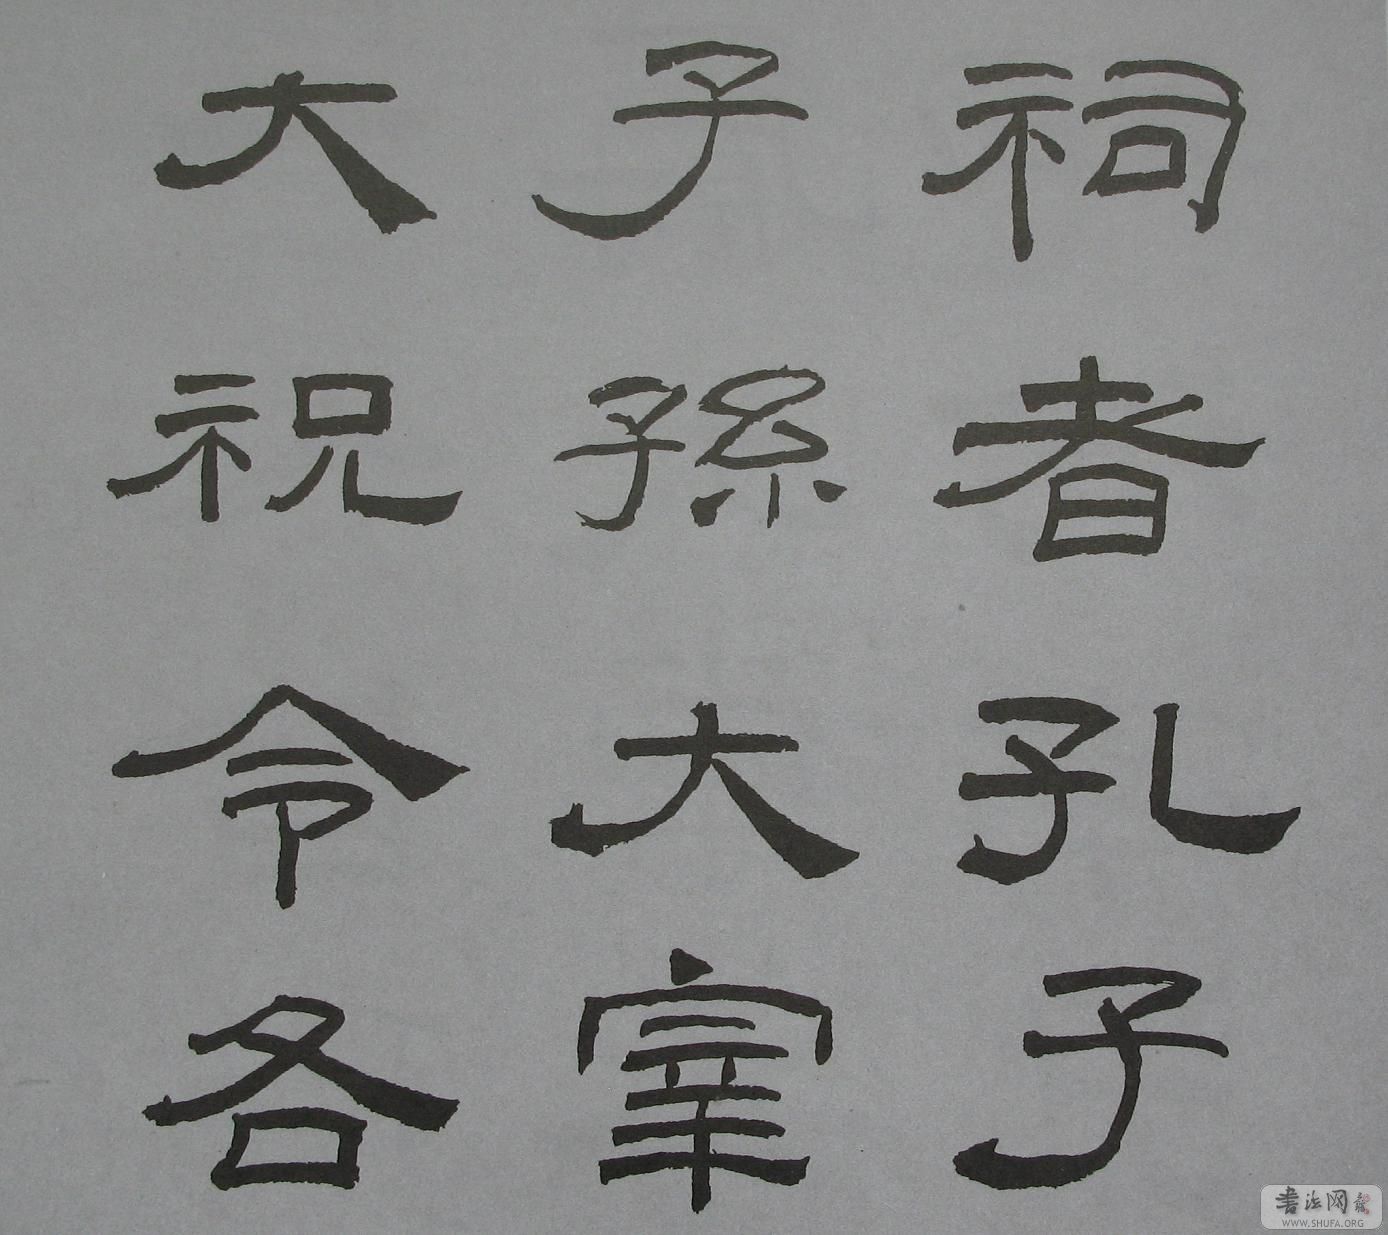 祠者孔子
子孫大宰
大祝令各
書法网
WWW.SHUFA.ORG